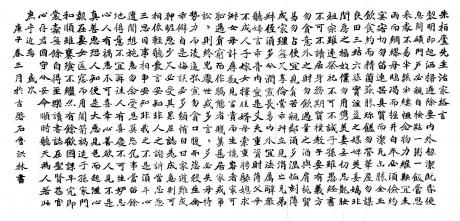 朱柏廬先生治家格言
黎明即起洒掃庭除要內外整潔既昏便
息關鎖門戶必親自檢點一粥一飯當思
來處不易半絲半縷恆念物力維艱宜未
雨而綢繆毋臨渴而掘井自奉必須儉約
宴客切勿留連器具質而潔瓦缶勝金玉
飲食約而精園蔬愈珍饈勿營華屋勿謀
良田三姑六婆實淫盜之媒婢美妾嬌非
閨房之福奴僕勿用俊美妻妾切忌艷妝
祖宗雖遠祭祀不可不誠子孫雖愚經書
不可不讀居身務期質樸教子要有義方
勿貪意外之財勿飲過量之酒與肩挑貿
易毋佔便宜見貧苦親鄰須加溫恤刻薄
成家理無久享倫常乖舛立見消亡兄弟
叔姪須分多潤寡長幼內外宜法肅辭嚴
聽婦言乖骨肉豈是丈夫重資財薄父母
不成人子嫁女擇佳婿毋索重聘娶媳求
淑女勿計厚奩見富貴而生諂容者最可
恥遇貧窮而作驕態者賤莫甚居家戒爭
訟訟則終凶處世戒多言言多必失勿恃
勢力而凌逼孤寡毋貪口腹而恣殺牲禽
乖僻自是悔誤必多頹惰自甘家道難成
狎暱惡少久必受其累屈志老成急則可
相依輕聽發言安知非人之譖訴當忍耐
三思因事相爭焉知非我之不是須平心
暗想施惠無念受恩莫忘凡事當留餘
地得意不宜再往人有喜慶不可生妒忌
心人有禍患不可生喜幸心善欲人見不是
真善惡恐人知便是大惡見色而起淫心
報在妻女匿怨而用暗箭禍延子孫家門
和順雖饔飧不繼亦有餘歡國課早完即
囊橐無餘自得至樂讀書志在聖賢為官
心存君國守分安命順時聽天為人若此
庶乎近焉
庚子春三月於古磬石齋洪林書